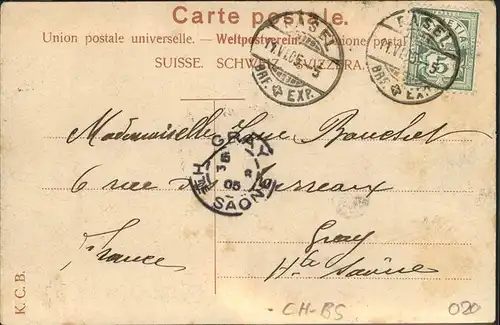 Carte postale.
Union postale universelle. — Weltpostverein. — Unione postale
SUISSE. SCHWEIZ. SVIZZERA.
BASEL
11.VI.05.-5
BRF. EXP.
BASEL
11.VI.05.-5
BRF. EXP.
5
Mademoiselle Bouchet
GRAY
05
HTE SAÔNE
6 rue des
Gray
France
Hte Saône
K. C. B.
CH-BS
020